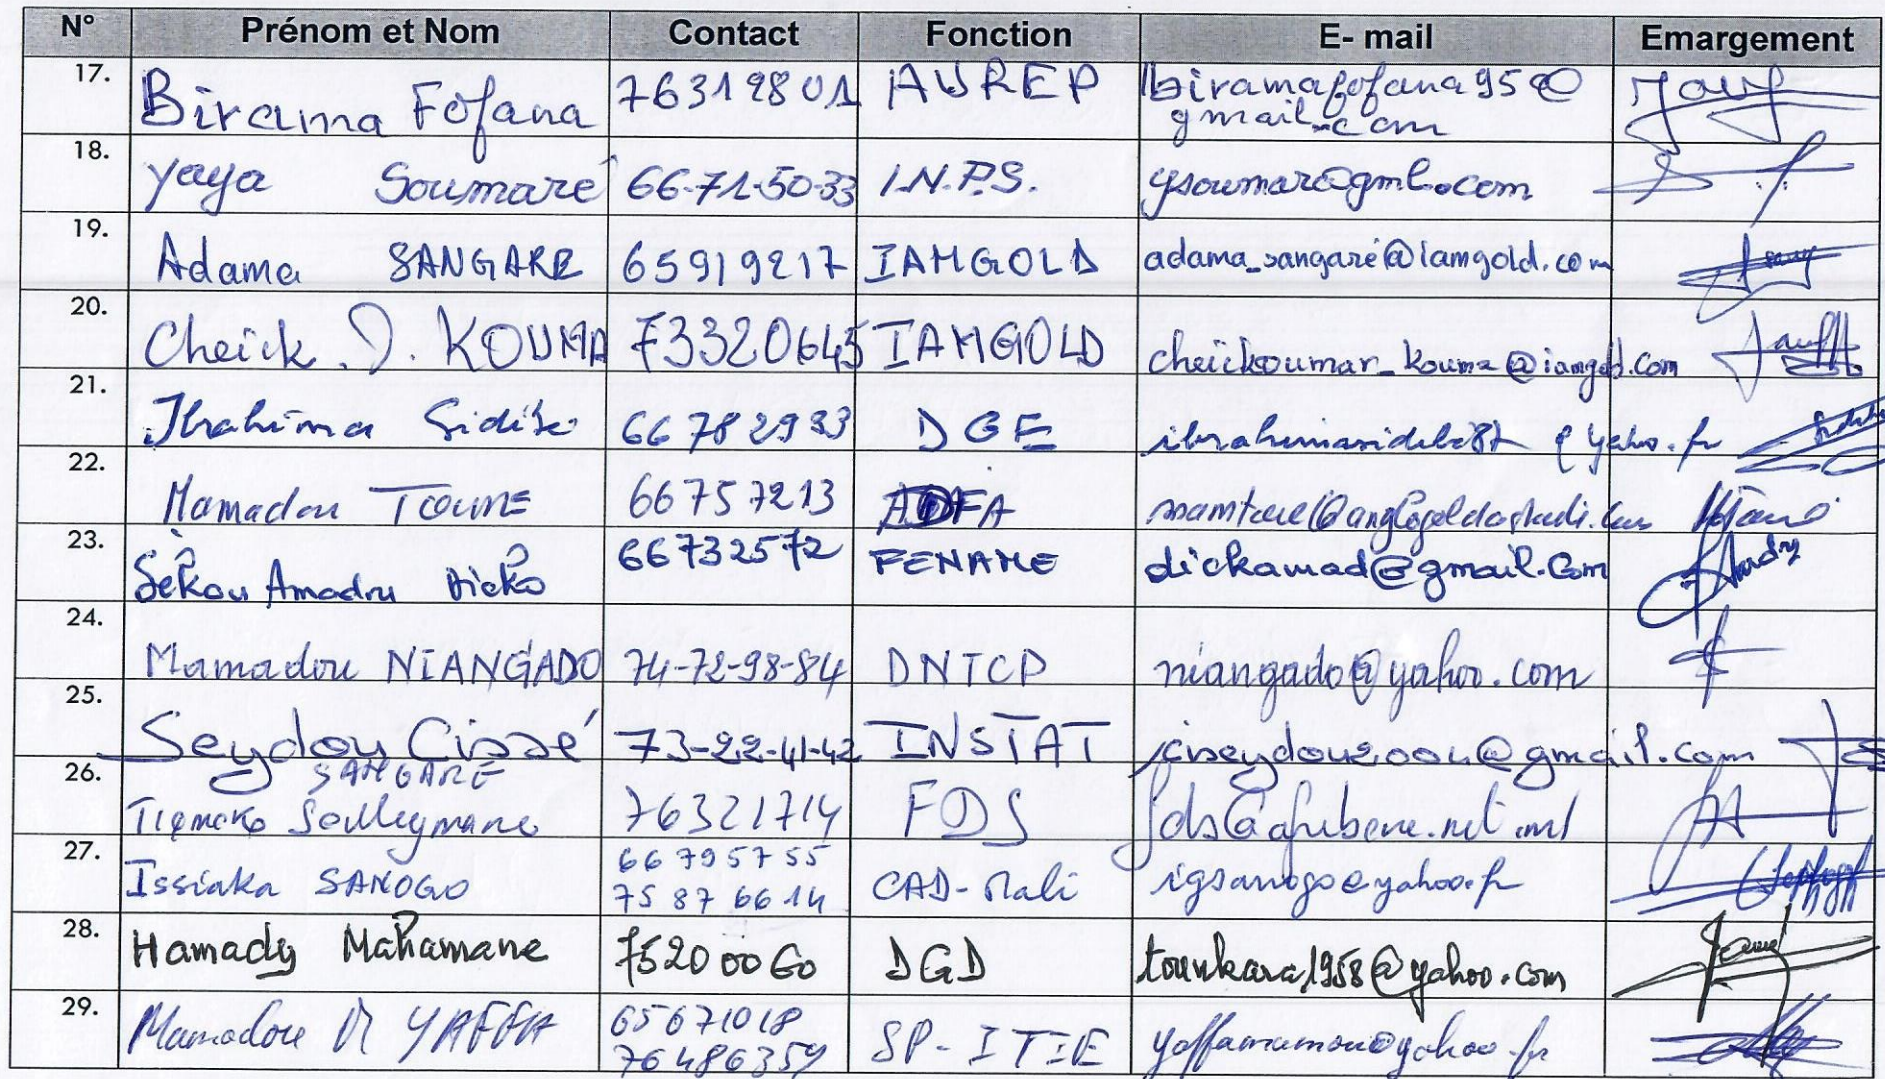 N° Prénom et Nom Contact Fonction E- mail Emargement
17. Birama Fofana 76319801 AUREP biramafofana95@
gmail.com
18. Yaya Soumaré 66-71-50-33 I.N.P.S. ysoumar@gml.com
19. Adama SANGARE 65919217 IAMGOLD adama_sangare@iamgold.com
20. Cheick O. KOUMA 73320645 IAMGOLD cheickoumar_kouma@iamgold.com
21. Ibrahima Sidibe 66782933 DGE ibrahimasidibe87 @ yaho.fr
22. Mamadou TOURE 66757213
23. Sékou Amadou Dicko 66732572 FENAME dickamad@gmail.com
24. Mamadou NIANGADO 74-72-98-84 DNTCP niangado@yahoo.com
25. Seydou Cissé 73-22-41-42 INSTAT
26. SANGARE
Tiemoko Souleymane 76321714 FDS fds@afribone.net.ml
27. Issiaka SANOGO 66795755 CAD-Mali igsanogo@yahoo.fr
75876614
28. Hamady Mahamane 75200060 DGD tounkara1958@yahoo.com
29. Mamadou YAFFA 65671018 SP-ITIE yaffamamou@yahoo.fr
76486359